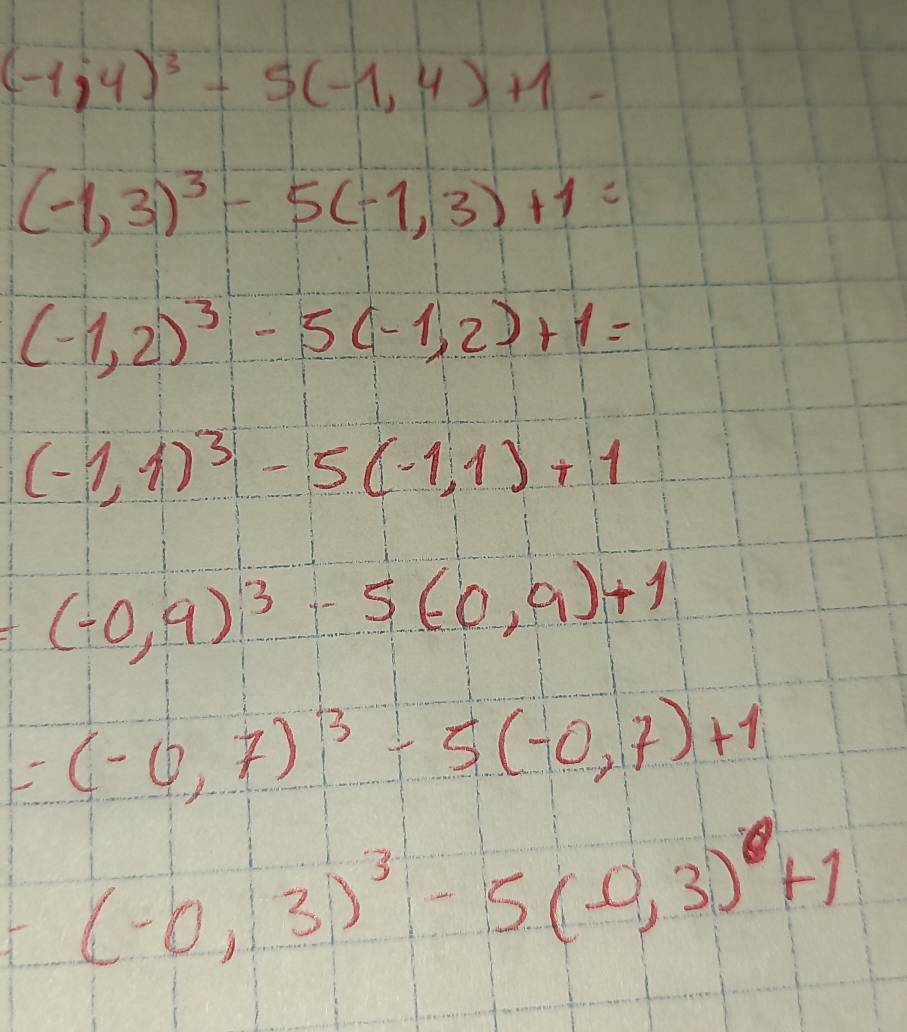 (-1,4)³ - 5(-1,4)+1 -
(-1,3)³ - 5(-1,3)+1=
(-1,2)³ - 5(-1,2)+1=
(-1,1)³ - 5(-1,1)+1
= (-0,9)³ - 5(-0,9)+1
= (-0,7)³ - 5(-0,7)+1
- (-0,3)³ - 5(-0,3)+1